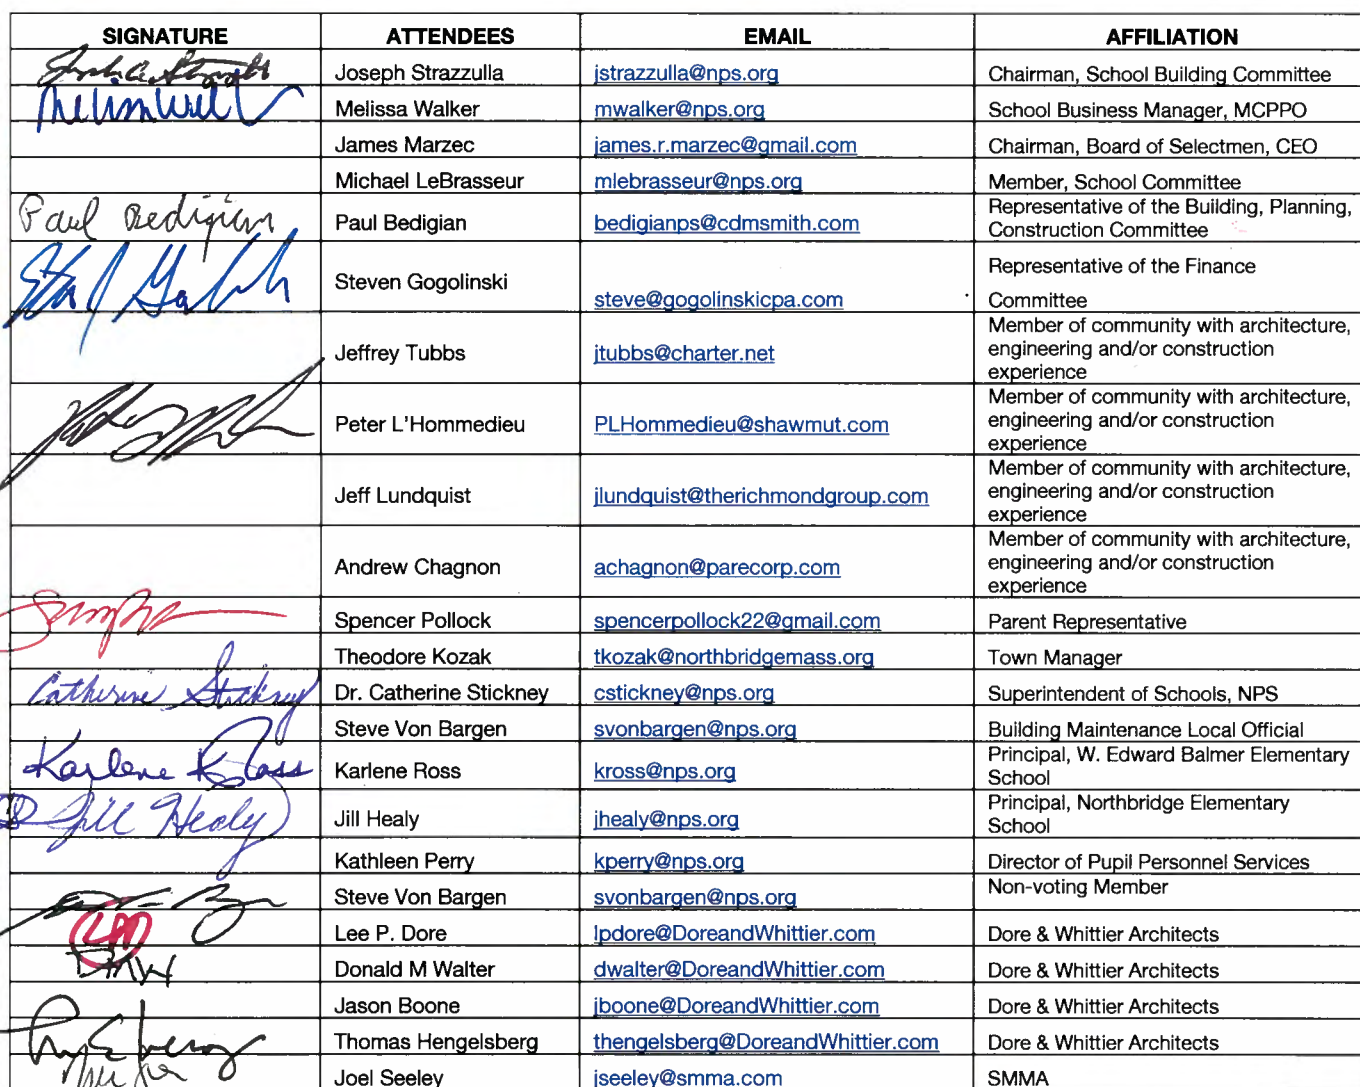 SIGNATURE ATTENDEES EMAIL AFFILIATION
Joseph Strazzulla jstrazzulla@nps.org Chairman, School Building Committee
Melissa Walker mwalker@nps.org School Business Manager, MCPPO
James Marzec james.r.marzec@gmail.com Chairman, Board of Selectmen, CEO
Michael LeBrasseur mlebrasseur@nps.org Member, School Committee
Paul Bedigian Paul Bedigian bedigianps@cdmsmith.com Representative of the Building, Planning,
Construction Committee
Steven Gogolinski steve@gogolinskicpa.com Representative of the Finance
Committee
Jeffrey Tubbs jtubbs@charter.net Member of community with architecture,
engineering and/or construction
experience
Peter L'Hommedieu PLHommedieu@shawmut.com Member of community with architecture,
engineering and/or construction
experience
Jeff Lundquist jlundquist@therichmondgroup.com Member of community with architecture,
engineering and/or construction
experience
Andrew Chagnon achagnon@parecorp.com Member of community with architecture,
engineering and/or construction
experience
Spencer Pollock spencerpollock22@gmail.com Parent Representative
Theodore Kozak tkozak@northbridgemass.org Town Manager
Catherine Stickney Dr. Catherine Stickney cstickney@nps.org Superintendent of Schools, NPS
Steve Von Bargen svonbargen@nps.org Building Maintenance Local Official
Karlene Ross Karlene Ross kross@nps.org Principal, W. Edward Balmer Elementary
School
Jill Healy Jill Healy jhealy@nps.org Principal, Northbridge Elementary
School
Kathleen Perry kperry@nps.org Director of Pupil Personnel Services
Steve Von Bargen svonbargen@nps.org Non-voting Member
Lee P. Dore lpdore@DoreandWhittier.com Dore & Whittier Architects
DMW Donald M Walter dwalter@DoreandWhittier.com Dore & Whittier Architects
Jason Boone jboone@DoreandWhittier.com Dore & Whittier Architects
Thomas Hengelsberg thengelsberg@DoreandWhittier.com Dore & Whittier Architects
Joel Seeley jseeley@smma.com SMMA